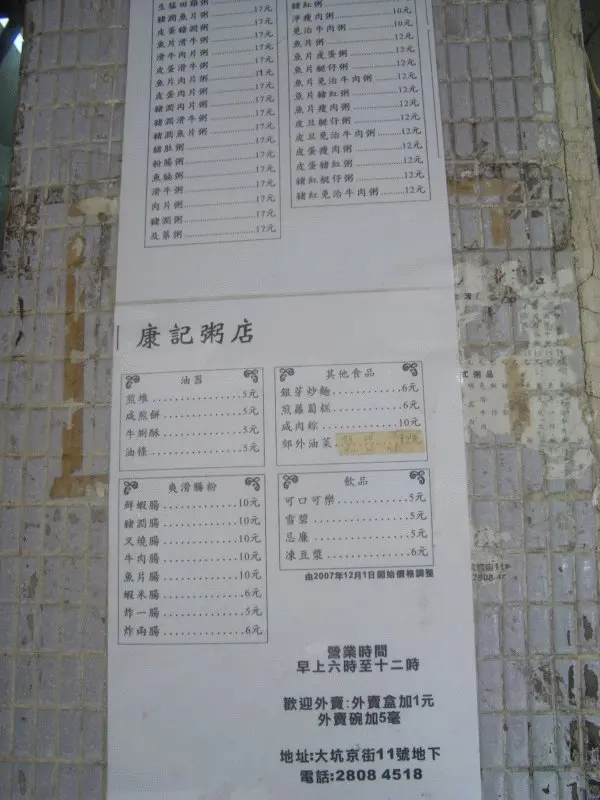 生猛田雞粥
豬潤魚片粥......17元
皮蛋豬潤粥......17元
魚片滑牛粥......17元
滑牛肉片粥......17元
皮蛋滑牛粥......17元
魚片肉片粥......17元
皮蛋肉片粥......17元
豬潤肉片粥......17元
豬潤滑牛粥......17元
豬潤魚片粥......17元
豬肚粥......17元
粉腸粥......17元
魚腩粥......17元
滑牛粥......17元
肉片粥......17元
豬潤粥......17元
及第粥......17元
豬紅粥
淨瘦肉粥......10元
免治牛肉粥......10元
魚片粥......12元
魚片皮蛋粥......12元
魚片艇仔粥......12元
魚片免治牛肉粥......12元
魚片豬紅粥......12元
魚片瘦肉粥......12元
皮旦艇仔粥......12元
皮旦免治牛肉粥......12元
皮蛋瘦肉粥......12元
皮蛋豬紅粥......12元
豬紅艇仔粥......12元
豬紅免治牛肉粥......12元
康記粥店
油器
煎堆......5元
咸煎餅......5元
牛脷酥......5元
油條......5元
其他食品
銀芽炒麵......6元
煎蘿蔔糕......6元
咸肉粽......10元
郊外油菜
爽滑腸粉
鮮蝦腸......10元
豬潤腸......10元
叉燒腸......10元
牛肉腸......10元
魚片腸......10元
蝦米腸......6元
炸一腸......5元
炸兩腸......6元
飲品
可口可樂......5元
雪碧......5元
忌廉......5元
凍豆漿......6元
由2007年12月1日開始價格調整
營業時間
早上六時至十二時
歡迎外賣:外賣盒加1元
外賣碗加5毫
地址:大坑京街11號地下
電話:2808 4518